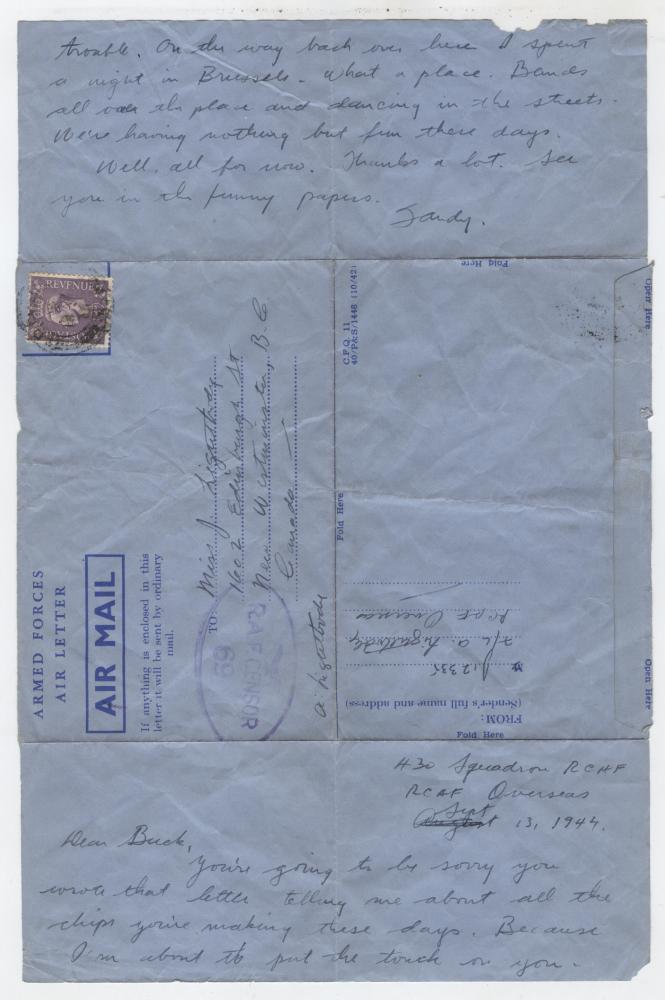 trouble. On the way back over here I spent
a night in Brussels. What a place. Bands
all over the place and dancing in the streets.
We're having nothing but fun these days.
Well, all for now. Thanks a lot. See
you in the funny papers.
Sandy.
REVENUE
ARMED FORCES
AIR LETTER
AIR MAIL
If anything is enclosed in this
letter it will be sent by ordinary
mail.
TO:
Miss J. Lightbody
1602 Edinburgh St
New Westminster, B.C
Canada
R.A.F. CENSOR
69
A. Lightbody
C.F.Q. 11
40/P&S/1448 (10/42)
Fold Here
Fold Here
Open Here
Open Here
FROM:
(Sender's full name and address)
J12335
F/L A. Lightbody
RCAF Overseas
Fold Here
430 Squadron RCAF
RCAF Overseas
August Sept 13, 1944.
Dear Buck,
You're going to be sorry you
wrote that letter telling me about all the
chips you're making these days. Because
I'm about to put the touch on you.